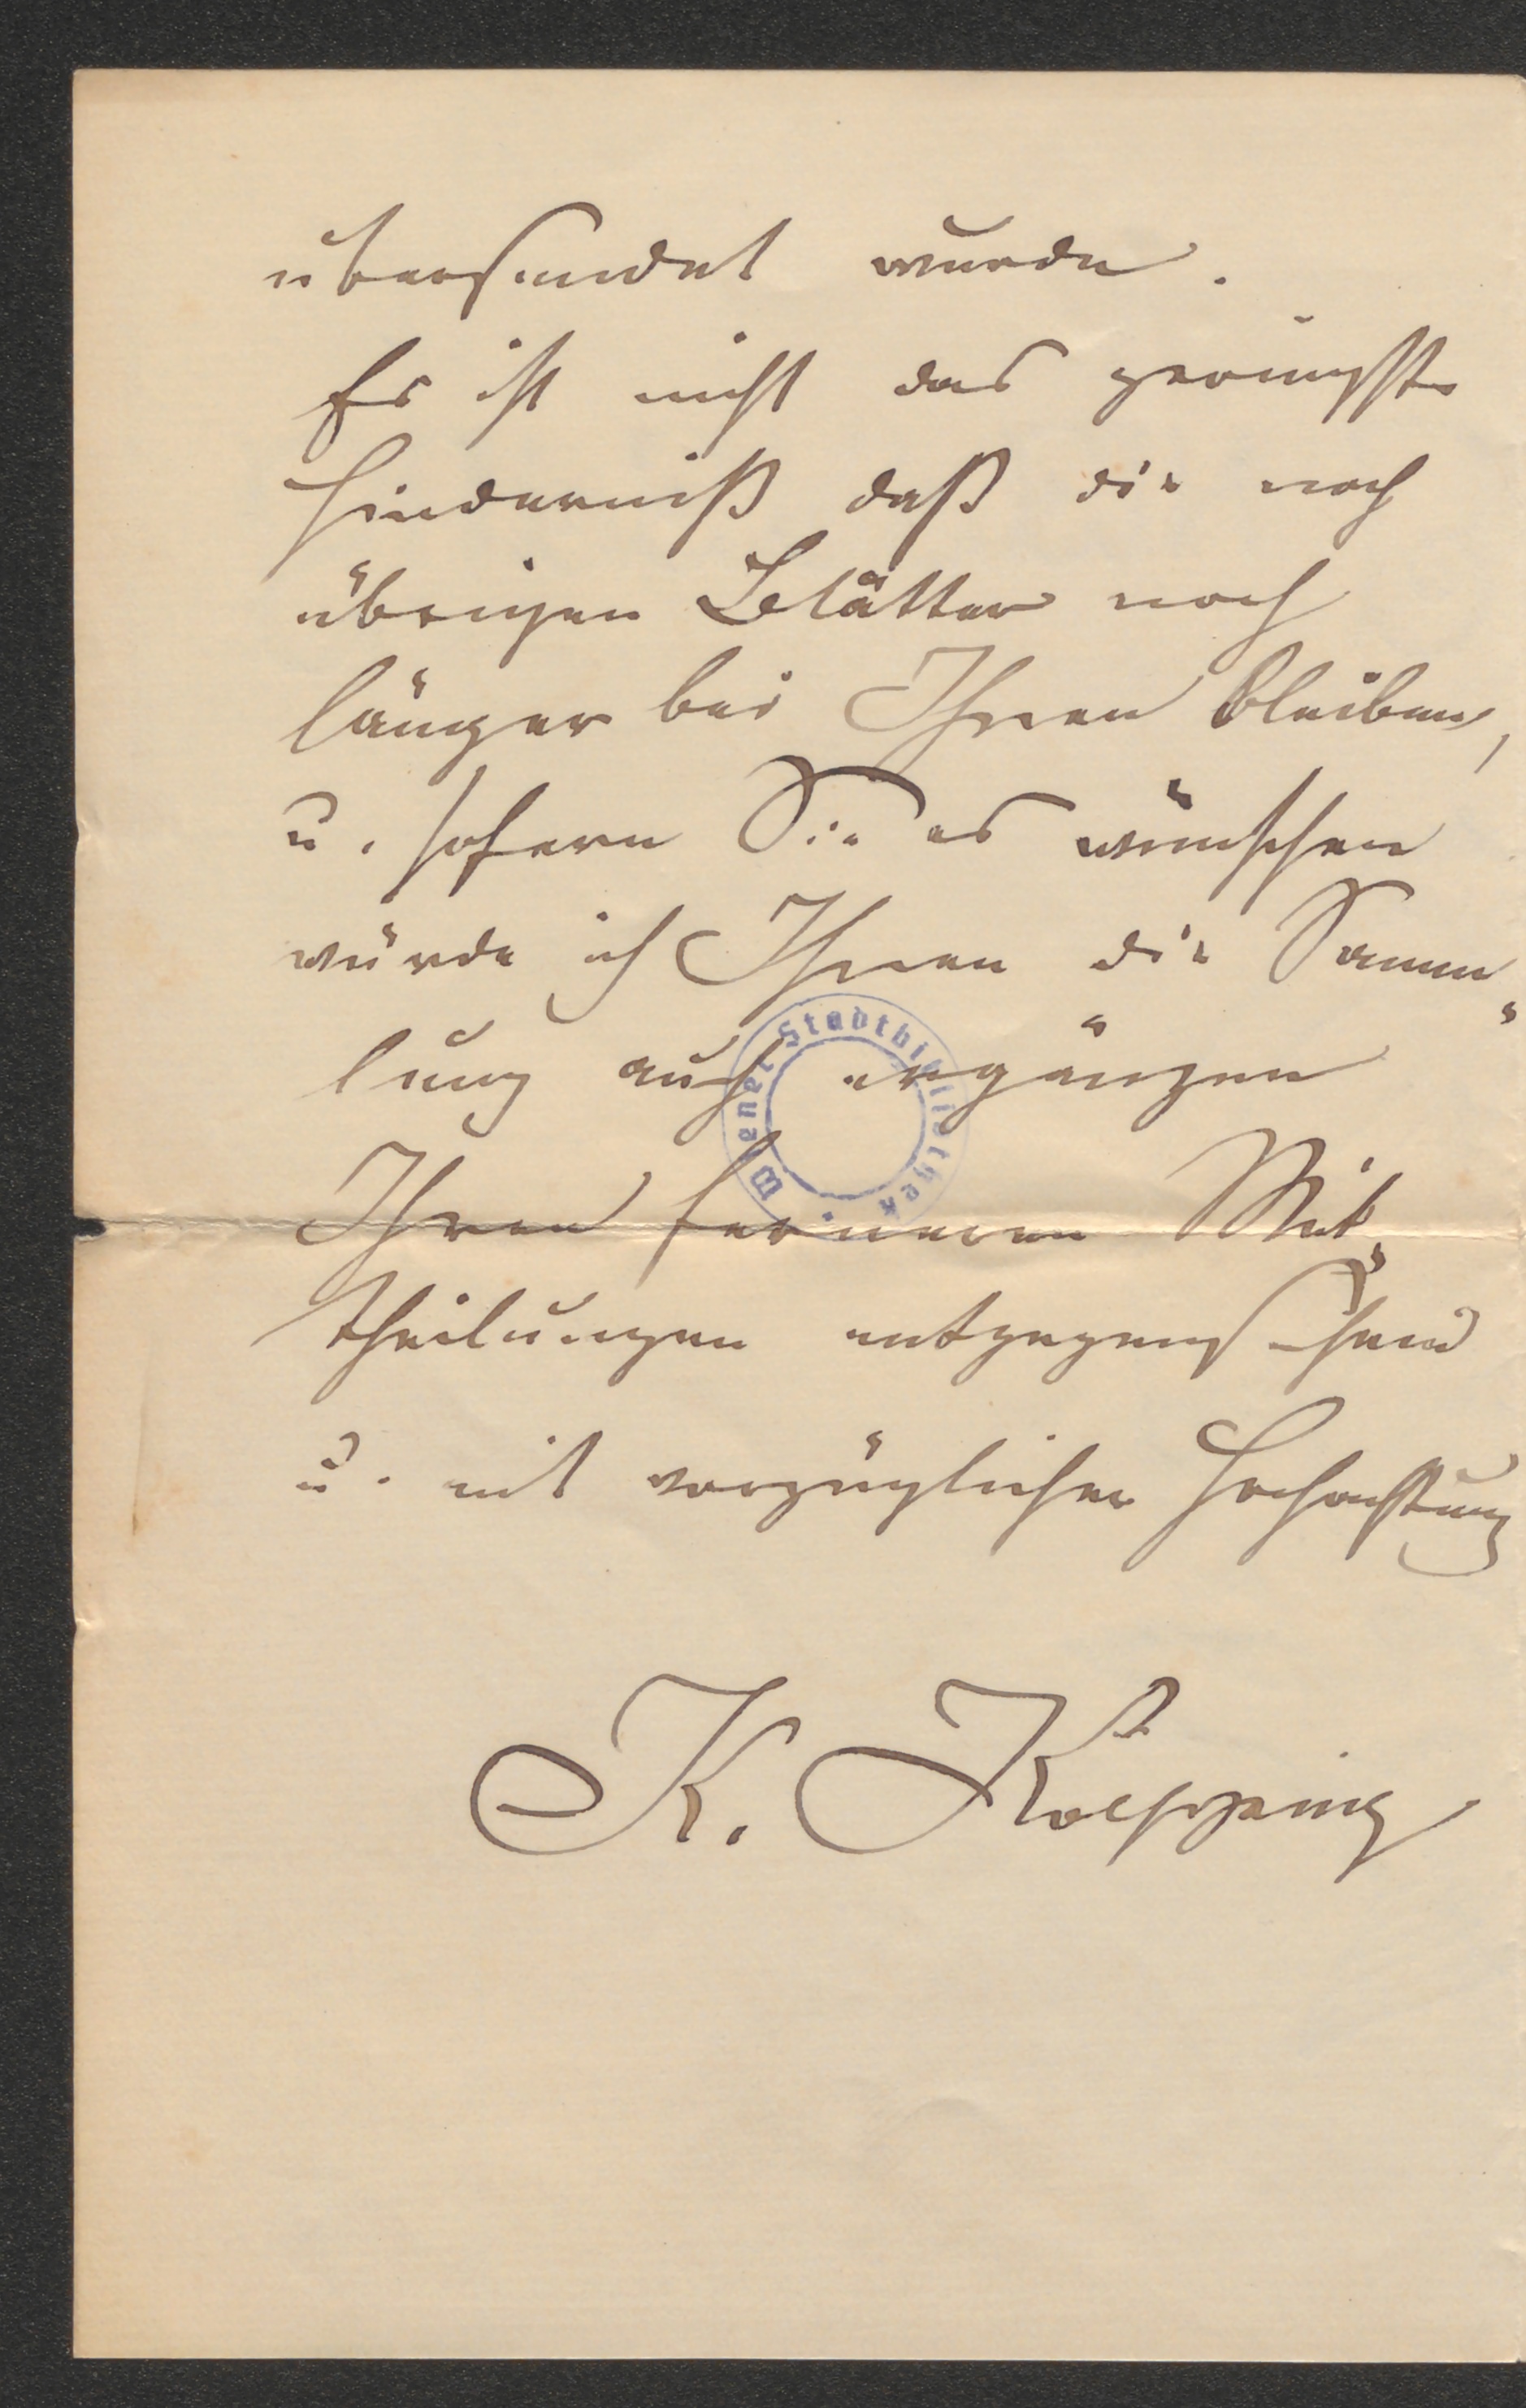 übersendet wurde.
Es ist nicht das geringste
Hinderniß daß die noch
übrigen Blätter noch
länger bei Ihnen bleiben,
u. sofern Sie es wünschen
würde ich Ihnen die Samm„
lung auch ergänzen
Wiener Stadtbibliothek
Ihren ferneren Mit„
theilungen entgegensehend
u. mit vorzüglicher Hochachtung
K. Koepping